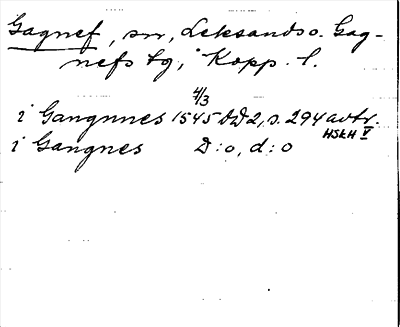 Gagnef, sn, Leksands o. Gag-
nefs tg, Kopp. l.
4/3
i Gangnnes 1545 DD 2, s. 294 avtr.
HSKH V
i Gangnes D:o, d:o